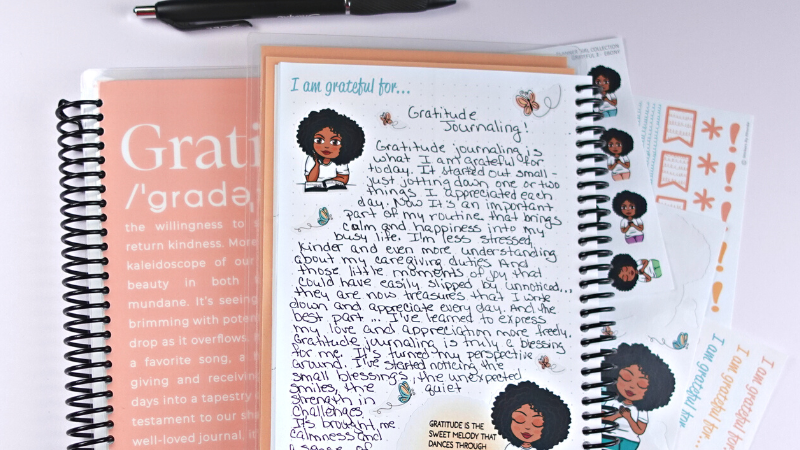 I am grateful for...
Gratitude
Journaling!
Gratitude journaling is
what I am grateful for
today. It started out small -
just jotting down one or two
things I appreciated each
day. Now it's an important
part of my routine that brings
calm and happiness into my
busy life. I'm less stressed,
kinder and even more understanding
about my caregiving duties. And
those little moments of joy that
could have easily slipped by unnoticed...
they are now treasures that I write
down and appreciate every day. And the
best part... I've learned to express
my love and appreciation more freely.
Gratitude journaling is truly a blessing
for me. It's turned my perspective
around. I've started noticing the
small blessings, the unexpected
smiles, the quiet
strength in
challenges.
It's brought me
calmness and
a sense of
GRATITUDE IS THE
SWEET MELODY THAT
DANCES THROUGH
Grati
/ˈɡradə
the willingness to s
return kindness. More
kaleidoscope of our
beauty in both
mundane. It's seeing
brimming with poten
drop as it overflows.
a favorite song, a
giving and receivin
days into a tapestry
testament to our sh
well-loved journal, i
I am grateful for
I am grateful for...
I am grateful for...